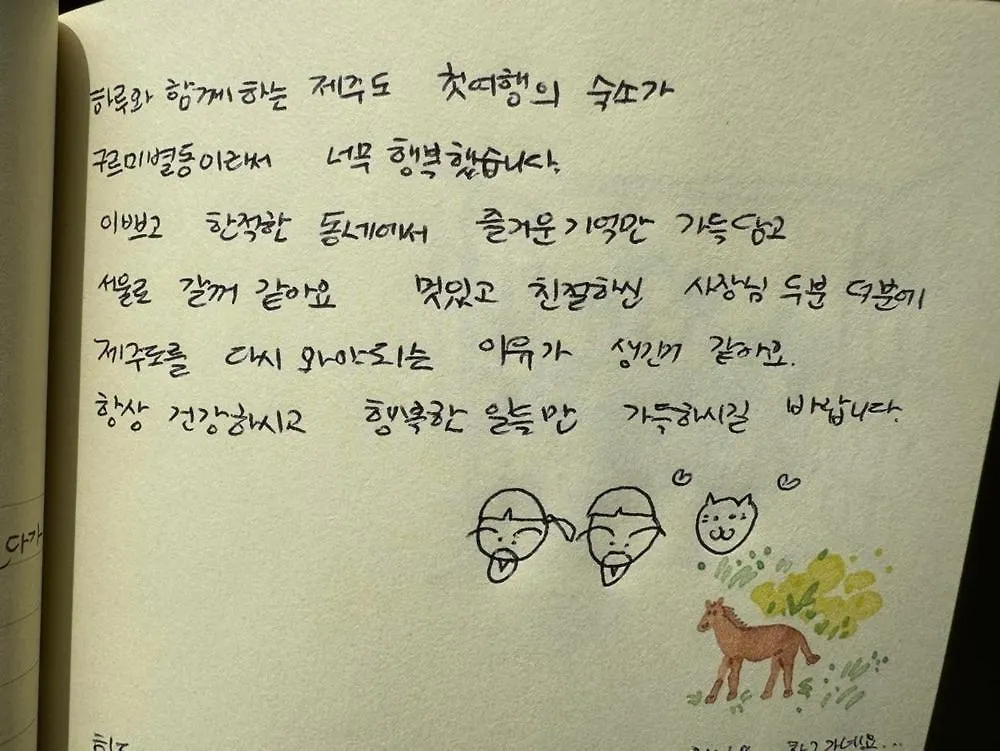 하루와 함께하는 제주도 첫여행의 숙소가
구르미별동이라서 너무 행복했습니다.
이쁘고 한적한 동네에서 즐거운 기억만 가득담고
서울로 갈꺼 같아요 멋있고 친절하신 사장님 두분 덕분에
제주도를 다시 와야되는 이유가 생긴거 같아요.
항상 건강하시고 행복한 일들만 가득하시길 바랍니다.
다가